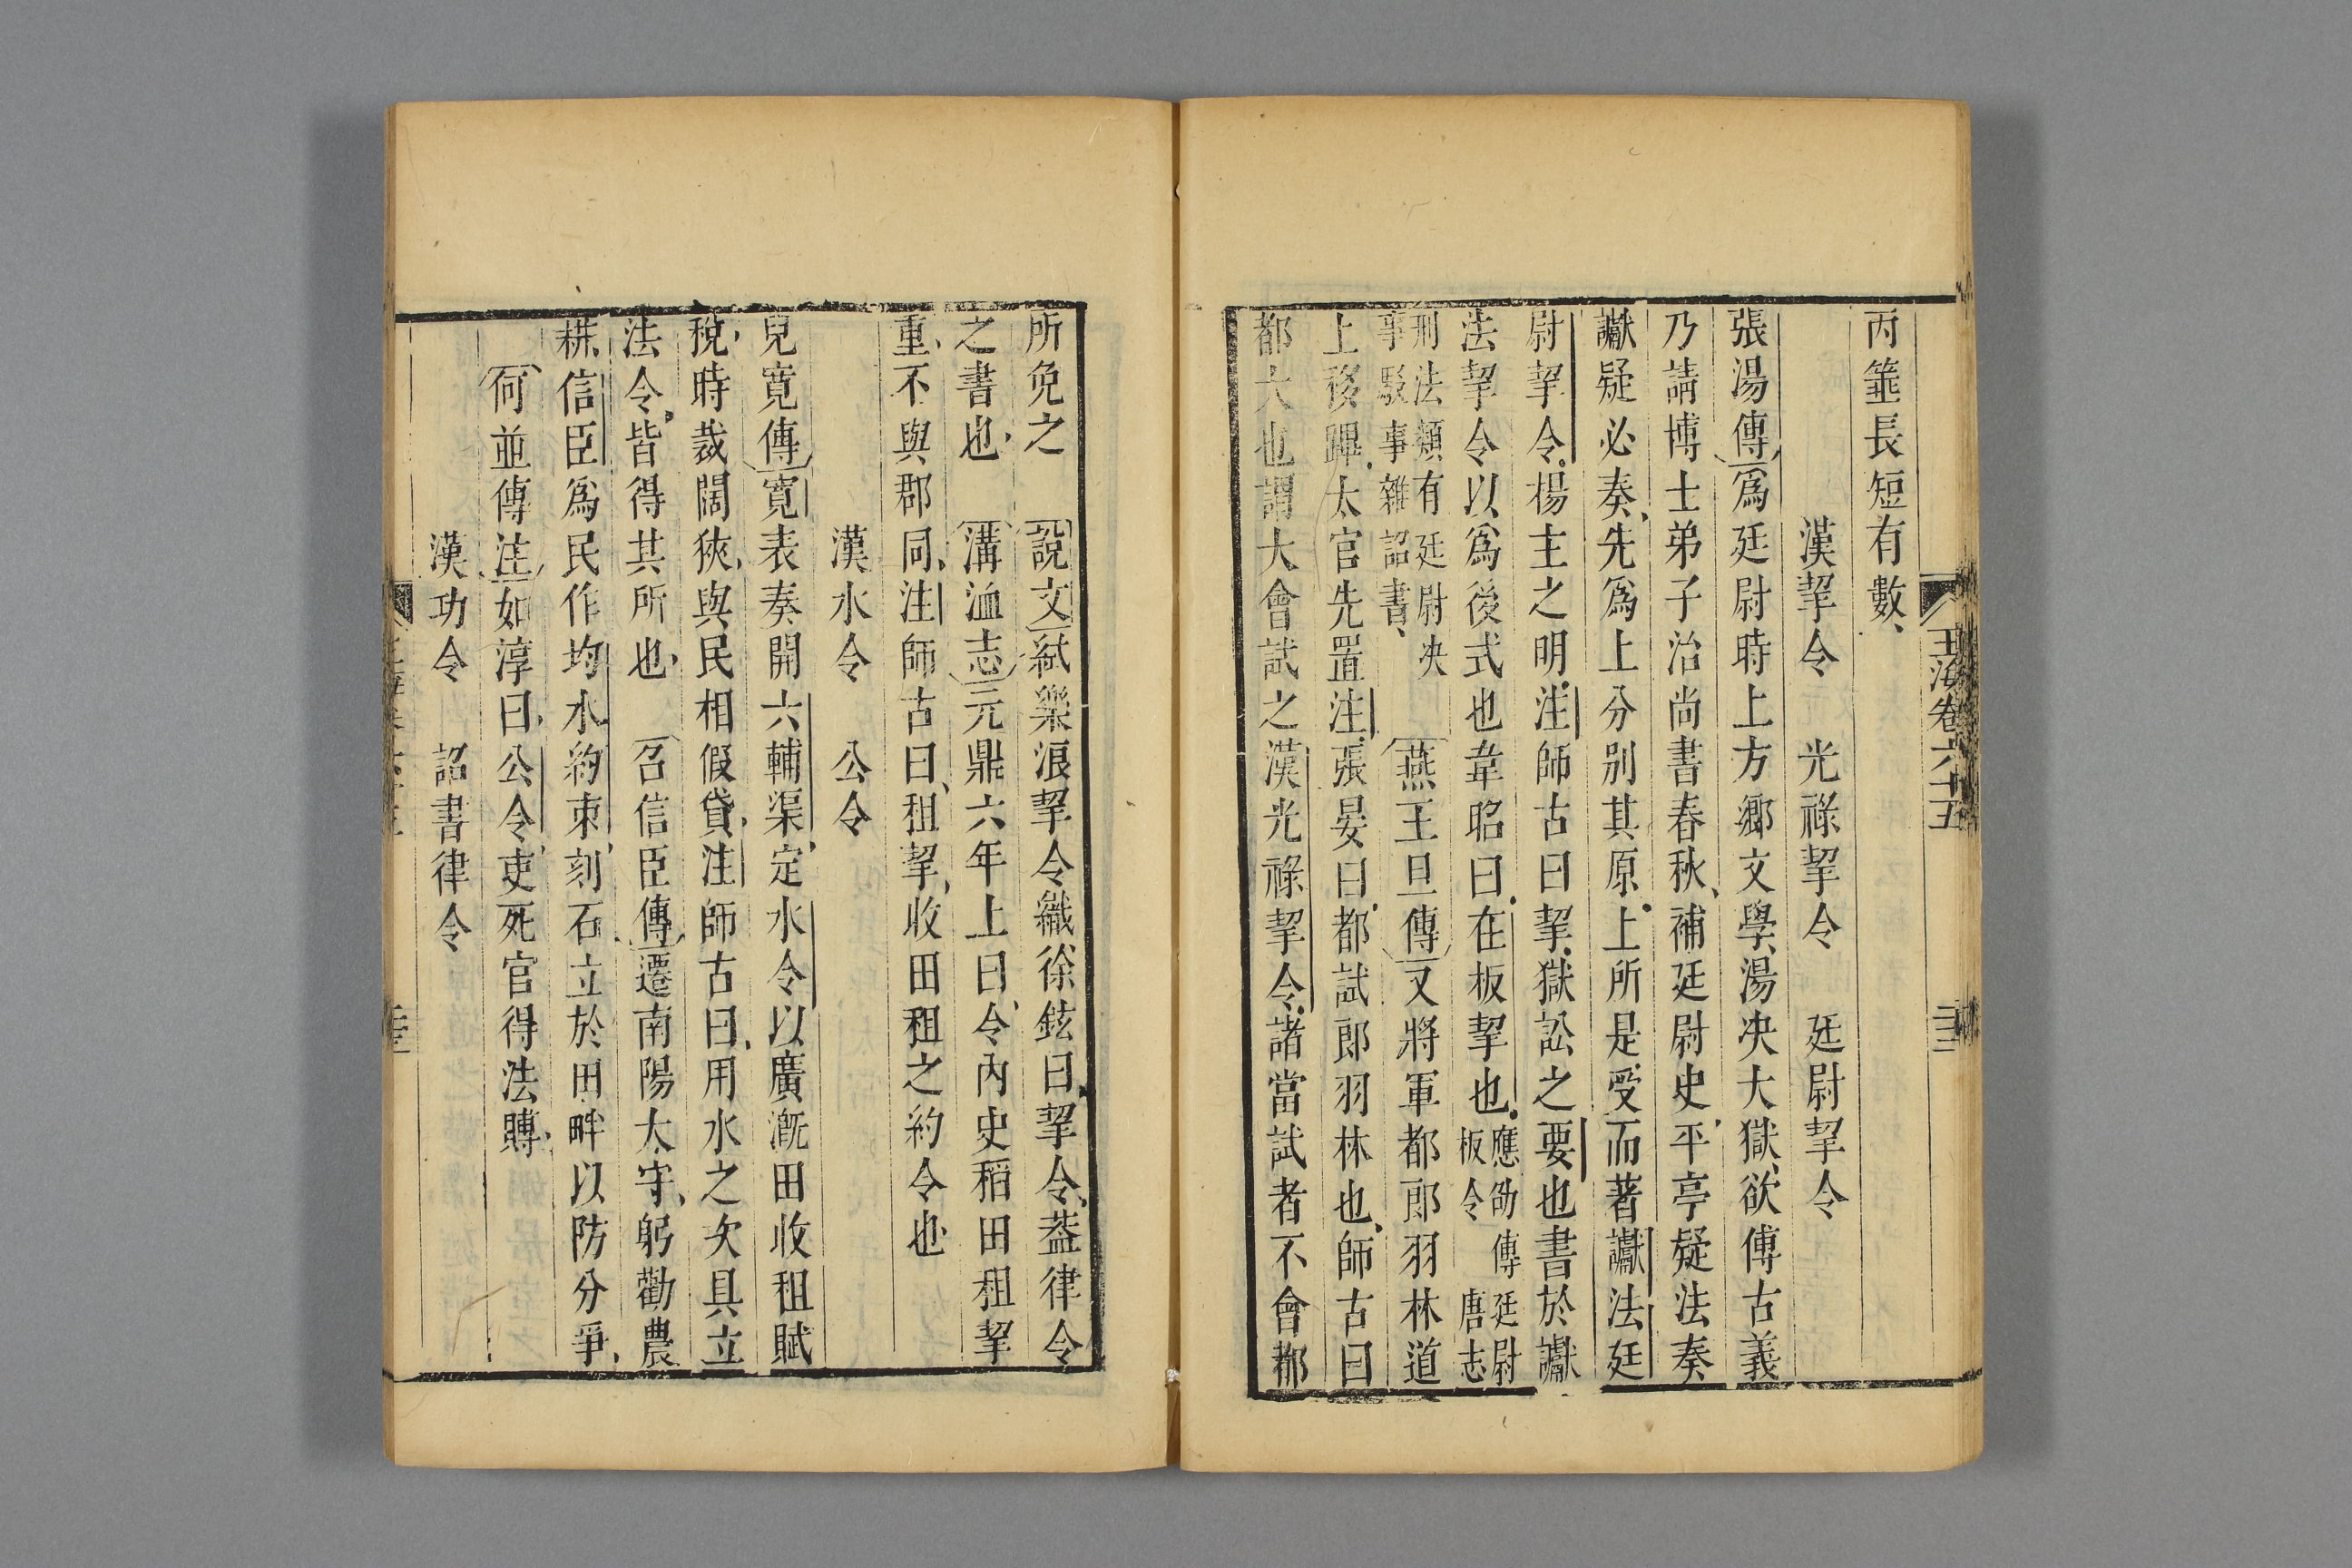 玉海卷六十五
丙箠長短有數
漢挈令 光祿挈令 廷尉挈令
張湯傳爲廷尉時上方鄉文學湯决大獄欲傳古義
乃請博士弟子治尚書春秋補廷尉史平亭疑法奏
讞疑必奏先爲上分别其原上所是受而著讞法廷
尉挈令揚主之明注師古曰挈獄訟之要也書於讞
法挈令以爲後式也韋昭曰在板挈也應劭傳廷尉板令 唐志
刑法類有廷尉决事駁事雜詔書 燕王旦傳又將軍都郎羽林道
上移蹕太官先置注張晏曰都試郎羽林也師古曰
都大也謂大會試之漢光祿挈令諸當試者不會都
所免之 說文紤樂浪挈令織徐鉉曰挈令葢律令
之書也 溝洫志元鼎六年上曰令內史稻田租挈
重不與郡同注師古曰租挈收田租之約令也
漢水令 公令
兒寬傳寬表奏開六輔渠定水令以廣漑田收租賦
稅時裁闊狹與民相假貸注師古曰用水之次具立
法令皆得其所也 召信臣傳遷南陽太守躬勸農
耕信臣爲民作均水約束刻石立於田畔以防分爭
何並傳注如淳曰公令吏死官得法賻
漢功令 詔書律令